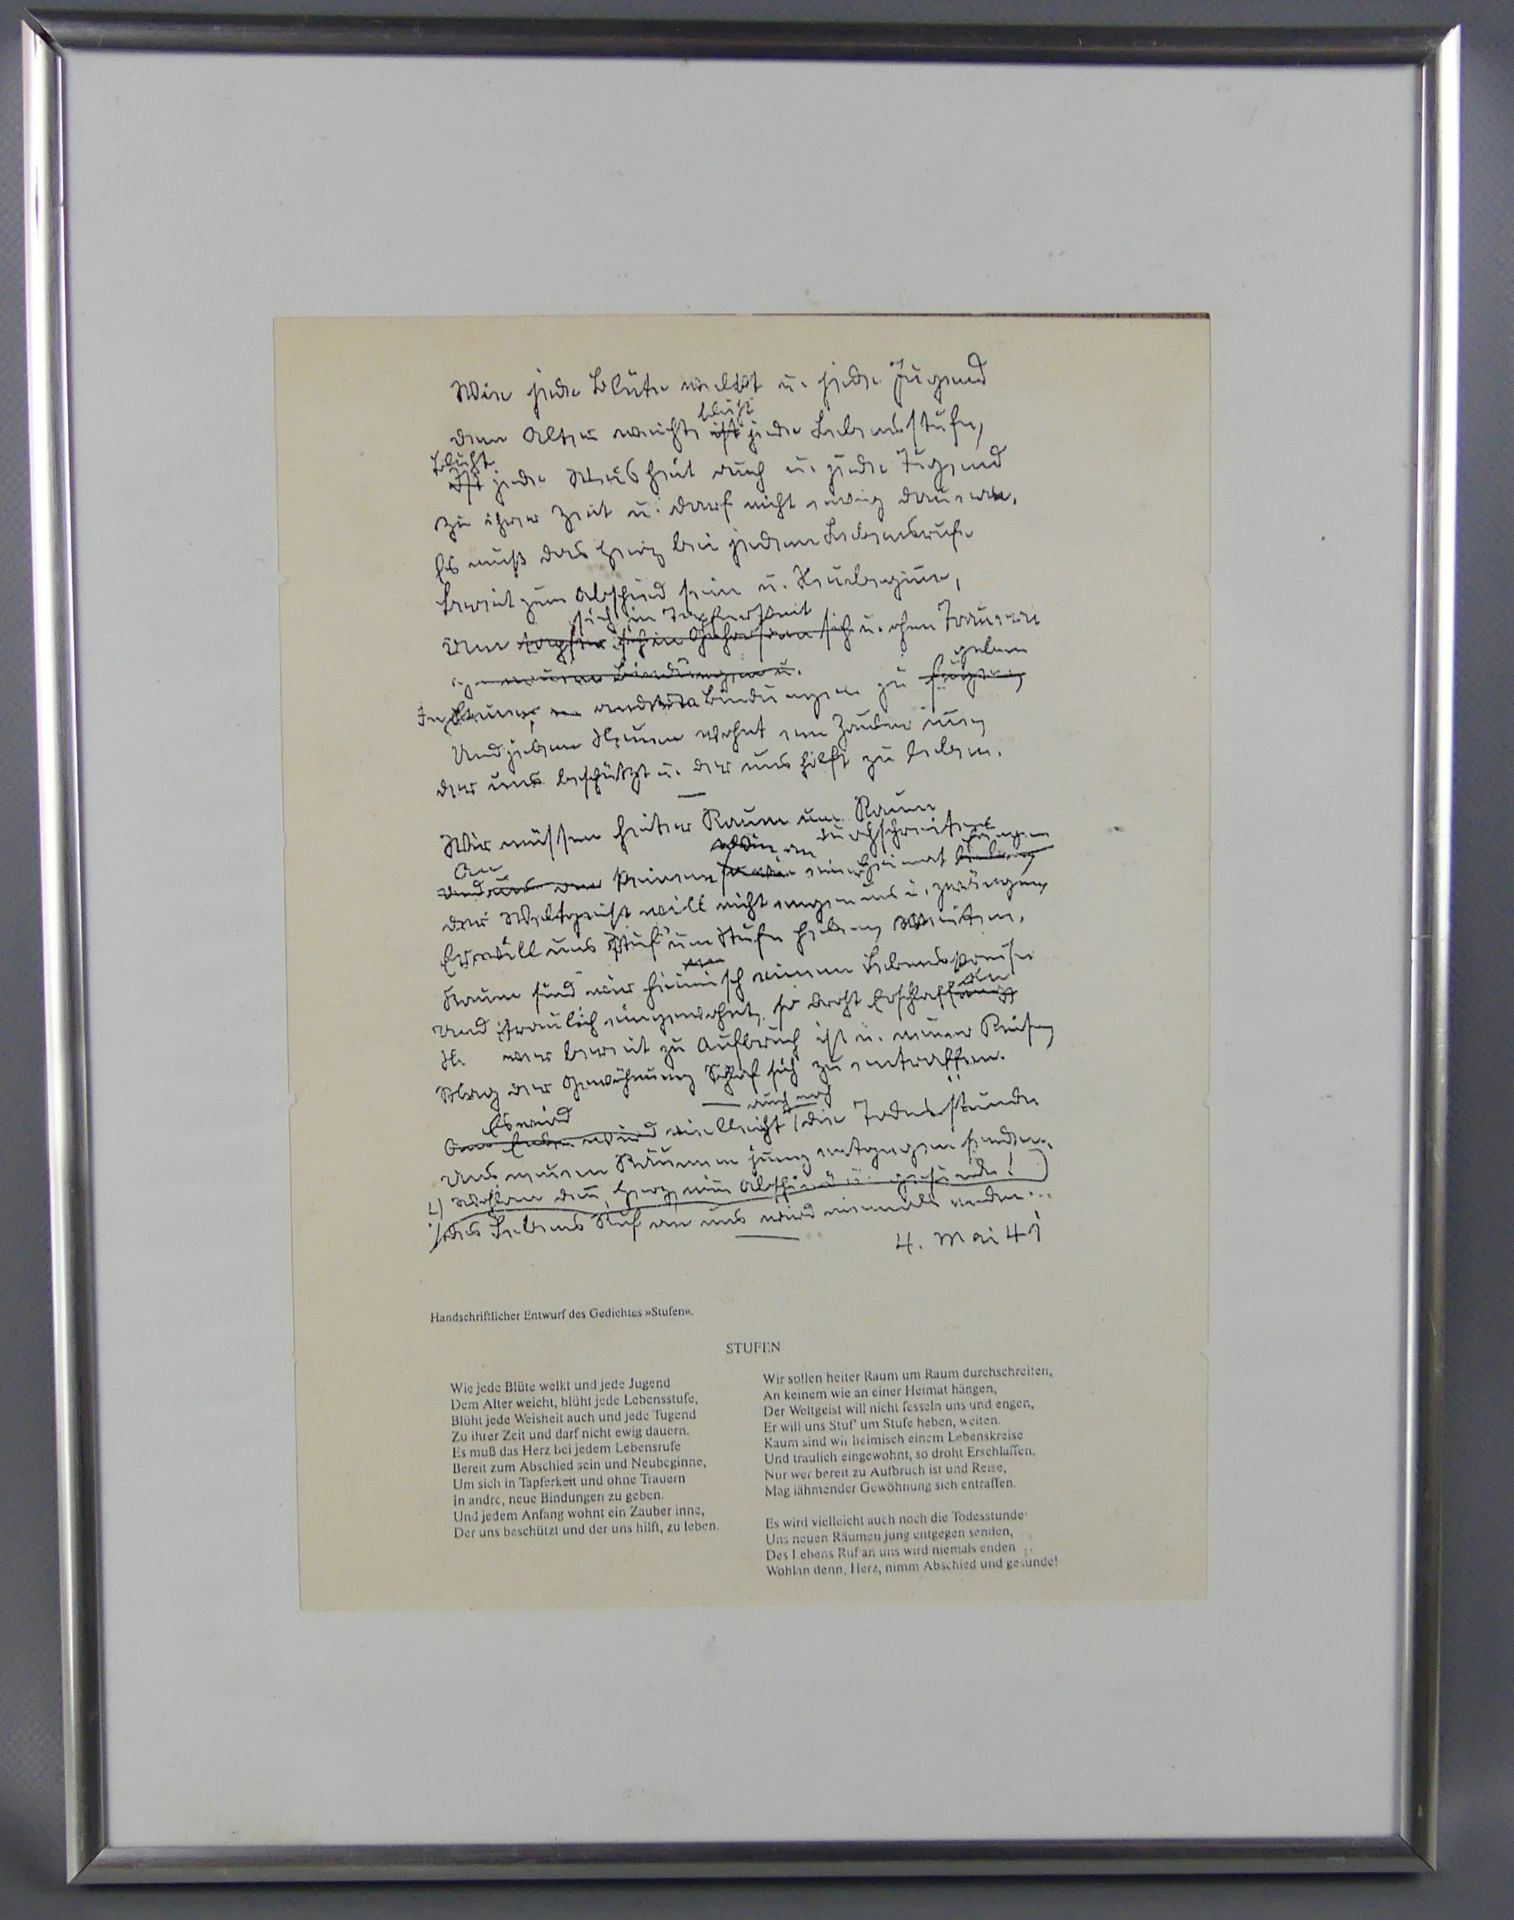 Wie jede Blüte welkt u. jede Jugend
blüht
dem Alter weicht, ist jede Lebensstufe,
Blüht
Ist jede Weisheit auch u. jede Tugend
zu ihrer Zeit u. darf nicht ewig dauern.
Es muß das Herz bei jedem Lebensrufe
bereit zum Abschied sein u. Neubeginne,
sich in Tapferkeit
Um tapfer sich u. ohne Trauern
geben
In andre Bindungen zu fügen
Und jedem wohnt ein Zauber inne
der uns beschützt u. der uns hilft zu leben.
Wir müssen heiter Raum um Raum
durchschreiten
An wie an hängen
keinem einer Heimat
der Weltgeist will nicht engen uns u. zwängen,
Er will uns Stuf' um Stufe heben, weiten.
Kaum sind wir heimisch einem Lebenskreise
en
und traulich eingewohnt, so droht Erschlaffung
N. wer bereit zu Aufbruch ist u. neuer Reise,
Mag der Gewöhnung Schlaf sich zu entraffen.
auch noch
Es wird
wird vielleicht die Todesstunde
Uns neuen Räumen jung entgegen senden.
2) Wohlan denn, Herz, nimm Abschied u. gesunde!
1) Des Lebens Ruf an uns wird niemals enden...
4. Mai 41
Handschriftlicher Entwurf des Gedichtes »Stufen«.
STUFEN
Wie jede Blüte welkt und jede Jugend
Dem Alter weicht, blüht jede Lebensstufe,
Blüht jede Weisheit auch und jede Tugend
Zu ihrer Zeit und darf nicht ewig dauern.
Es muß das Herz bei jedem Lebensrufe
Bereit zum Abschied sein und Neubeginne,
Um sich in Tapferkeit und ohne Trauern
In andre, neue Bindungen zu geben.
Und jedem Anfang wohnt ein Zauber inne,
Der uns beschützt und der uns hilft, zu leben.
Wir sollen heiter Raum um Raum durchschreiten,
An keinem wie an einer Heimat hängen,
Der Weltgeist will nicht fesseln uns und engen,
Er will uns Stuf' um Stufe heben, weiten.
Kaum sind wir heimisch einem Lebenskreise
Und traulich eingewohnt, so droht Erschlaffen,
Nur wer bereit zu Aufbruch ist und Reise,
Mag lähmender Gewöhnung sich entraffen.
Es wird vielleicht auch noch die Todesstunde
Uns neuen Räumen jung entgegen senden,
Des Lebens Ruf an uns wird niemals enden . . .
Wohlan denn, Herz, nimm Abschied und gesunde!